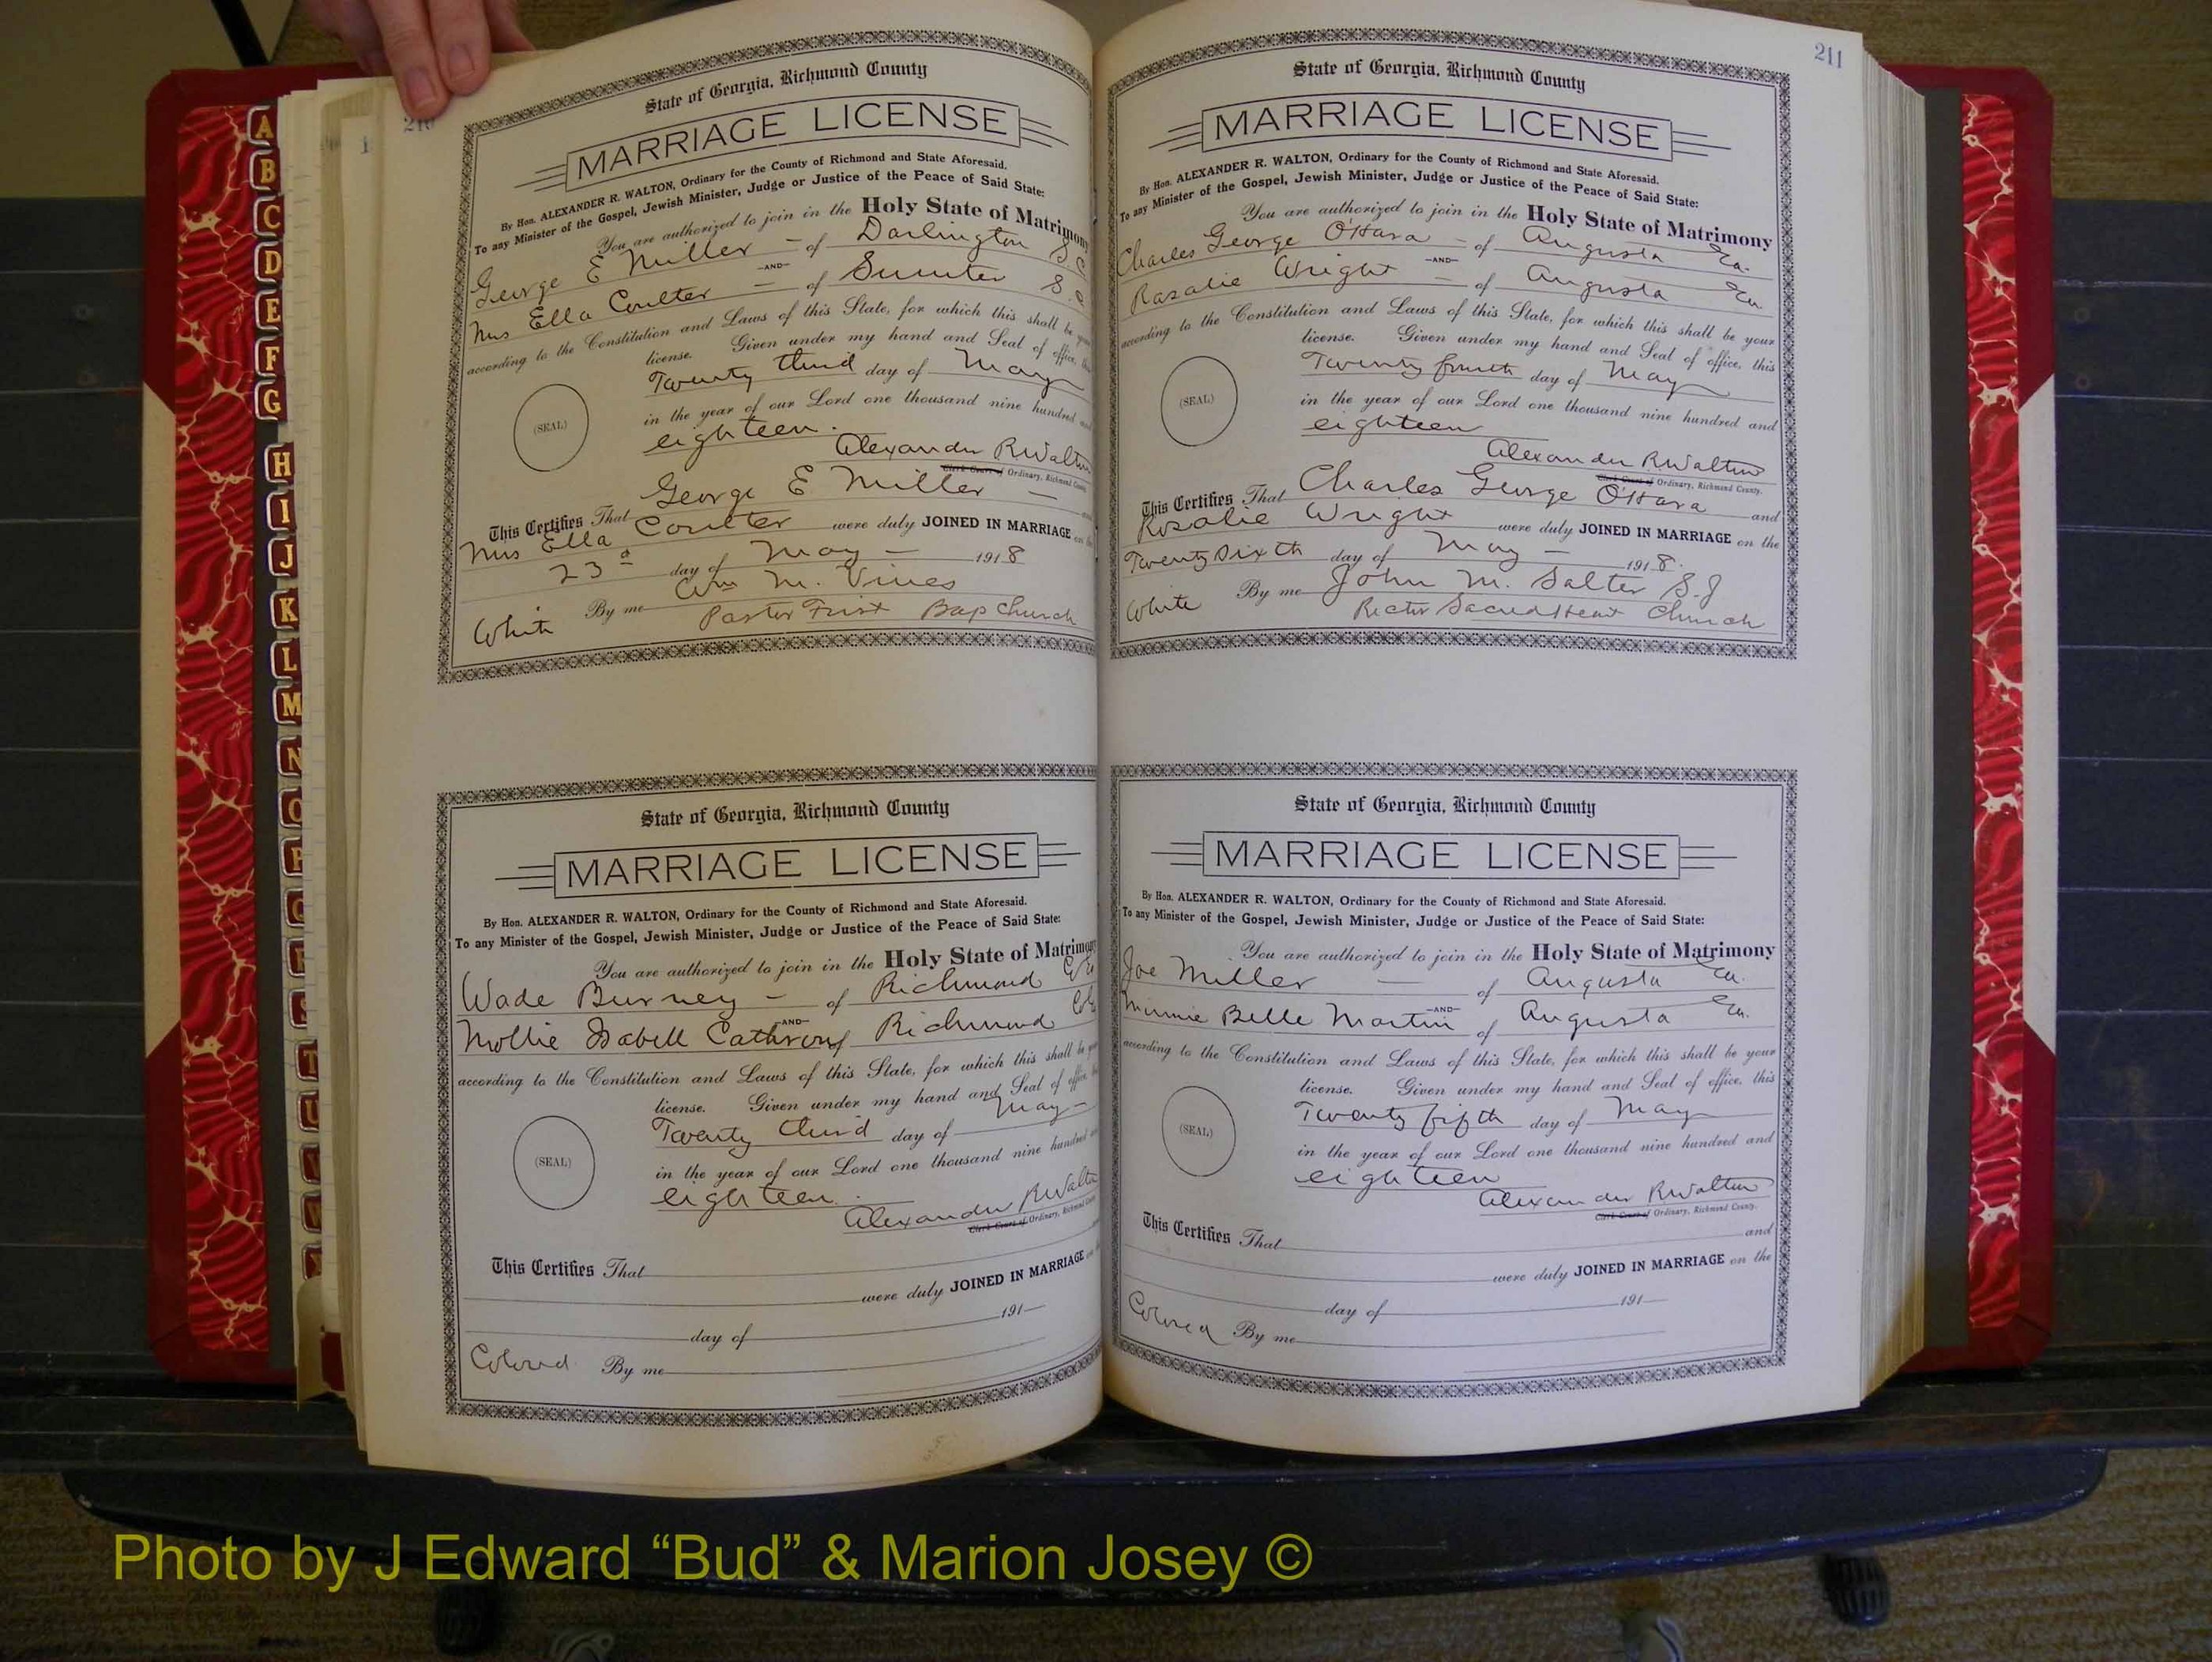 210
State of Georgia, Richmond County
MARRIAGE LICENSE
By Hon. ALEXANDER R. WALTON, Ordinary for the County of Richmond and State Aforesaid.
To any Minister of the Gospel, Jewish Minister, Judge or Justice of the Peace of Said State:
You are authorized to join in the Holy State of Matrimony
George E Miller - of Darlington S C
-AND-
Mrs Ella Coulter - of Sumter S. C
according to the Constitution and Laws of this State, for which this shall be your
license. Given under my hand and Seal of office, this
Twenty third day of May
(SEAL)
in the year of our Lord one thousand nine hundred and
eighteen.
Alexander R Walton
Clerk Court of Ordinary, Richmond County
This Certifies That George E Miller -
Mrs Ella Coulter were duly JOINED IN MARRIAGE on the
23d day of May - 1918
By me Wm M. Vines
White Pastor First Bap Church
State of Georgia, Richmond County
MARRIAGE LICENSE
By Hon. ALEXANDER R. WALTON, Ordinary for the County of Richmond and State Aforesaid.
To any Minister of the Gospel, Jewish Minister, Judge or Justice of the Peace of Said State:
You are authorized to join in the Holy State of Matrimony
Wade Burney - of Richmond Co
-AND-
Mollie Isabell of Richmond Co
according to the Constitution and Laws of this State, for which this shall be your
license. Given under my hand and Seal of office, this
Twenty third day of May -
(SEAL)
in the year of our Lord one thousand nine hundred and
eighteen.
Alexander R Walton
Clerk Court of Ordinary, Richmond County
This Certifies That
were duly JOINED IN MARRIAGE on
day of 191
Colored By me
211
State of Georgia, Richmond County
MARRIAGE LICENSE
By Hon. ALEXANDER R. WALTON, Ordinary for the County of Richmond and State Aforesaid.
To any Minister of the Gospel, Jewish Minister, Judge or Justice of the Peace of Said State:
You are authorized to join in the Holy State of Matrimony
Charles George O'Hara - of Augusta Ga.
-AND-
Rosalie Wright - of Augusta Ga.
according to the Constitution and Laws of this State, for which this shall be your
license. Given under my hand and Seal of office, this
Twenty fourth day of May
(SEAL)
in the year of our Lord one thousand nine hundred and
eighteen
Alexander R Walton
Clerk Court of Ordinary, Richmond County.
This Certifies That Charles George O'Hara and
Rosalie Wright were duly JOINED IN MARRIAGE on the
Twenty Sixth day of May - 1918.
By me John M. Salter S.J
White Rector Sacred Heart Church
State of Georgia, Richmond County
MARRIAGE LICENSE
By Hon. ALEXANDER R. WALTON, Ordinary for the County of Richmond and State Aforesaid.
To any Minister of the Gospel, Jewish Minister, Judge or Justice of the Peace of Said State:
You are authorized to join in the Holy State of Matrimony
Joe Miller - of Augusta Ga.
-AND-
Minnie Belle Martin of Augusta Ga.
according to the Constitution and Laws of this State, for which this shall be your
license. Given under my hand and Seal of office, this
Twenty fifth day of May
(SEAL)
in the year of our Lord one thousand nine hundred and
eighteen
Alexander R Walton
Clerk Court of Ordinary, Richmond County.
This Certifies That and
were duly JOINED IN MARRIAGE on the
day of 191
Colored By me
A
B
C
D
E
F
G
H
I
J
K
L
M
N
O
P
Q
R
S
T
U
V
W
Photo by J Edward “Bud” & Marion Josey ©